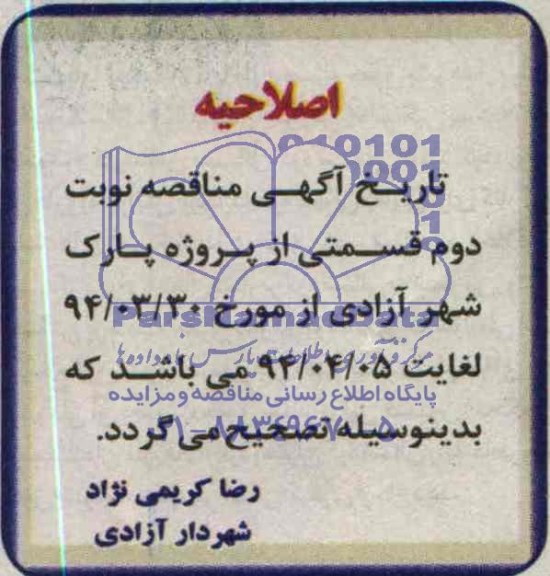 اصلاحیه
تاریخ آگهی مناقصه نوبت
دوم قسمتی از پروژه پارک
شهر آزادی از مورخ ۹۴/۰۳/۳۰
لغایت ۹۴/۰۴/۰۵ می باشد که
بدینوسیله تصحیح می گردد.
رضا کریمی نژاد
شهردار آزادی
ParsNamadData
پایگاه اطلاع رسانی مناقصه و مزایده